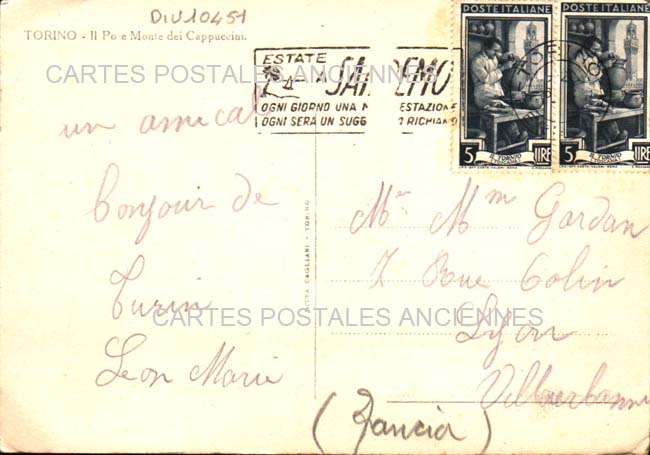 DIV10451
TORINO - Il Po e Monte dei Cappuccini.
CARTES POSTALES ANCIENNES
ESTATE
SANREMO
OGNI GIORNO UNA M ESTAZIONE
OGNI SERA UN SUGG O RICHIAMO
POSTE ITALIANE
POSTE ITALIANE
5 IL TORNIO LIRE
5 IL TORNIO LIRE
un amical
bonjour de
Turin
Léon Marie
DITTA CAGLIARI - TORINO
Mr Mm Gordan
7 Rue Colin
CARTES POSTALES ANCIENNES
Lyon
Villeurbanne
(Francia)